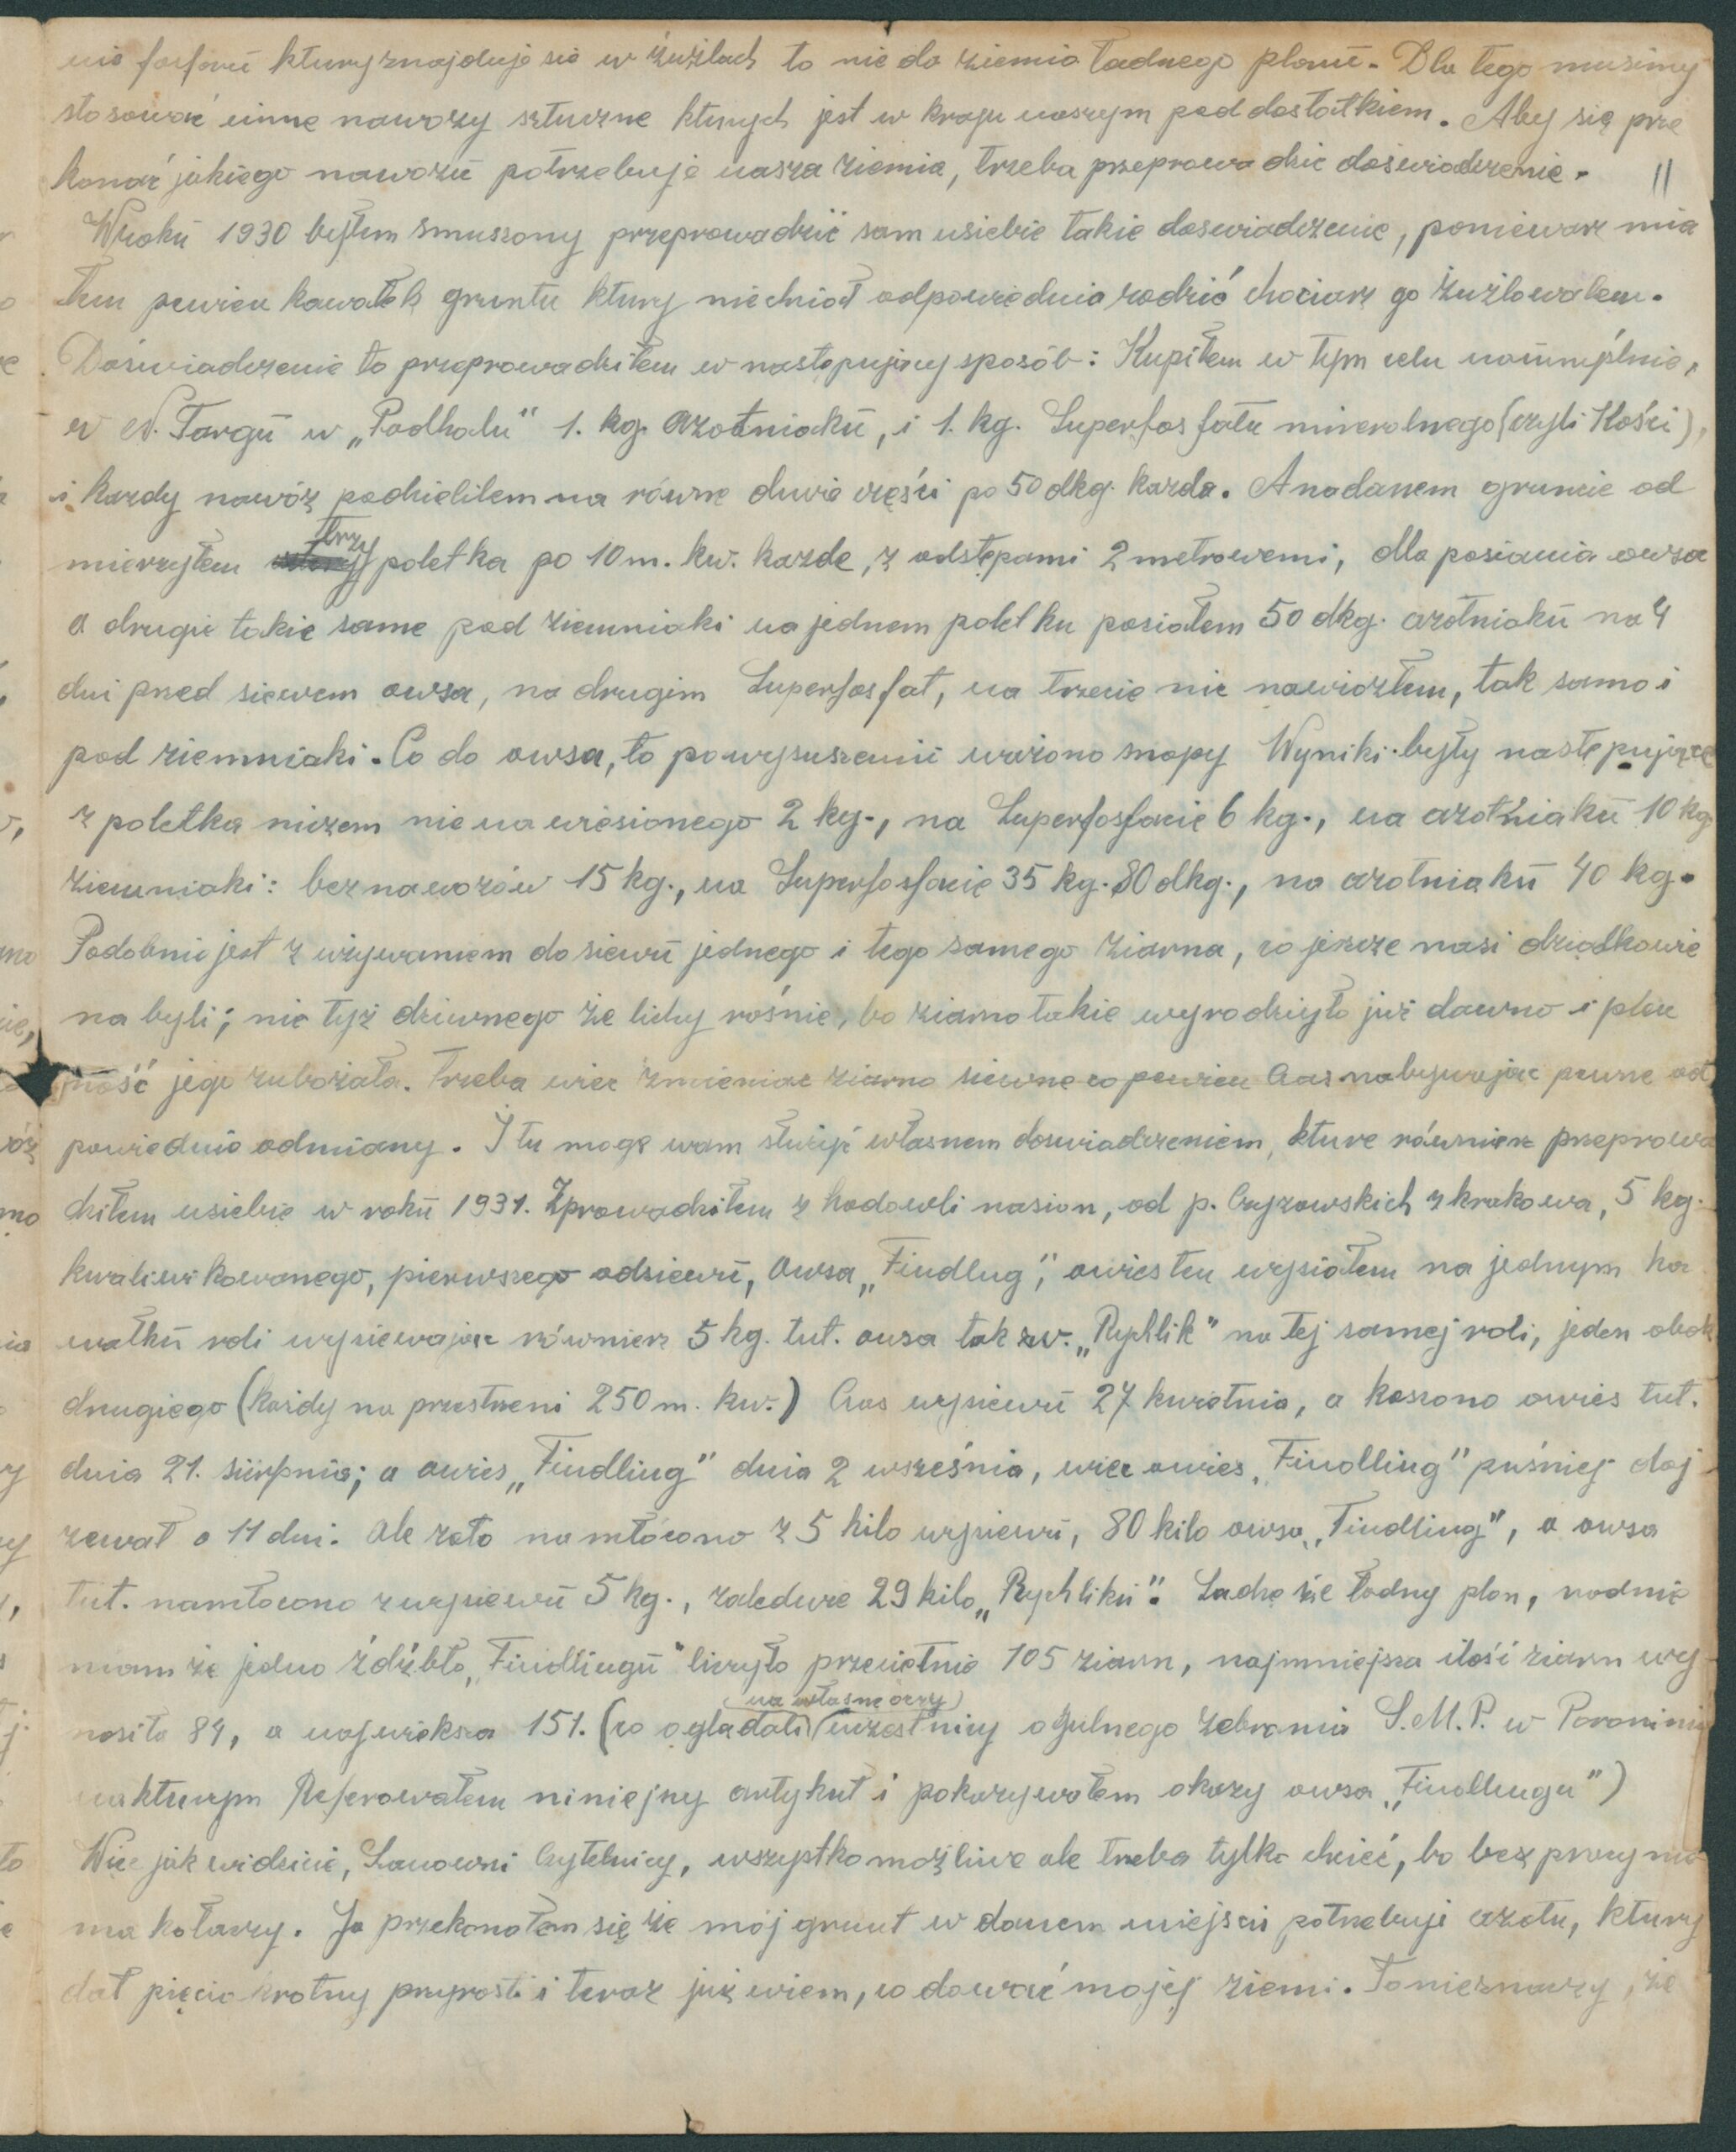 nie fosforu ktury znajduje sie w żużlach to nie da ziemia ładnego plonu. Dla tego musimy
stosować inne nawozy sztuczne kturych jest w kraju naszym pod dostatkiem. Aby się prze
konać jakiego nawozu potrzebuje nasza ziemia, trzeba przeprowadzic doświadczenie.
11
Wroku 1930 byłem smuszony przeprowadzić sam usiebie takie doswiadczenie, poniewarz mia
łem pewien kawałek gruntu ktury niechciał odpowiednio rodzić chociarz go żużlowałem.
Doświadczenie to przeprowadziłem w nastepujący sposób: Kupiłem w tym celu naumyślnie,
w N. Targu w „Podhalu" 1. kg. azotniaku, i 1. kg. Superfosfatu mineralnego (czyli Kości),
i kazdy nawóz podzielilem na równe dwie części po 50 dkg. kazda. A na danem gruncie od
mierzyłem trzy poletka po 10 m. kw. kazde, z odstępami 2 metrowemi, dla posiania owsa
a drugie takie same pod ziemniaki na jednem poletku posiałem 50 dkg. azotniaku na 4
dni pred siewem owsa, na drugim Superfosfat, na trzecie nie nawiozłem, tak samo i
pod ziemniaki. Co do owsa, to po wysuszeniu ważono snopy Wyniki były nastepujące
z poletka niczem nie nawiesionego 2 kg., na Superfosfacie 6 kg., na azotniaku 10 kg
ziemniaki: bez nawozów 15 kg., na Superfosfacie 35 kg. 80 dkg., na azotniaku 40 kg.
Podobnie jest z używaniem do siewu jednego i tego samego ziarna, co jeszcze nasi dziadkowie
na byli; nic tyż dziwnego że lichy rośnie, bo ziarno takie wyrodziyło już dawno i plen
ność jego zubożała. Trzeba wiec zmieniac ziarno siewne co pewien czas nabywajac pewne od
powiednie odmiany. I tu moge wam służyć własnem doswiadczeniem, kture równierz przeprowa
dziłem usiebie w roku 1931. Zprowadziłem z hodowli nasion, od p. Czyzowskich z krakowa, 5 kg.
kwaliwikowanego, pierwszego odsiewu, Owsa „Findlug", owies ten wysiałem na jednym ka
wałku roli wysiewajac równierz 5 kg. tut. owsa tak zw. „Rychlik" na tej samej roli, jeden obok
drugiego (każdy na przestrzeni 250 m. kw.) Czas wysiewu 27 kwietnia, a koszono owies tut.
dnia 21. sierpnia; a owies „Findling" dnia 2 września, wiec owies „Findling" puśniej doj
rzewał o 11 dni. Ale zato namłócono z 5 kilo wysiewu, 80 kilo owsa „Findling", a owsa
tut. namłocono z wysiewu 5 kg., zaledwie 29 kilo „Rychliku". Zadko sie ładny plon, nadmie
niam że jedno źdźbło „Findlingu" liczyło przecietnie 105 ziarn, najmniejsza ilość ziarn wy
nosiła 84, a najwieksza 151. (co ogladali (na własne oczy) uczestnicy ogulnego zebrania S.M.P. w Poroninie
nakturym Referowałem niniejszy artykuł i pokazywałem okazy owsa „Findlingu")
Wiec jak widzicie, Szanowni Czytelnicy, wszystko możliwe ale trzeba tylko chcieć, bo bez pracy nie
ma kołaczy. Ja przekonałem się że mój grunt w danem miejscu potrzebuje azotu, ktury
dał pięciokrotny przyrost i teraz już wiem, co dawać mojej ziemi. To nieznaczy, że